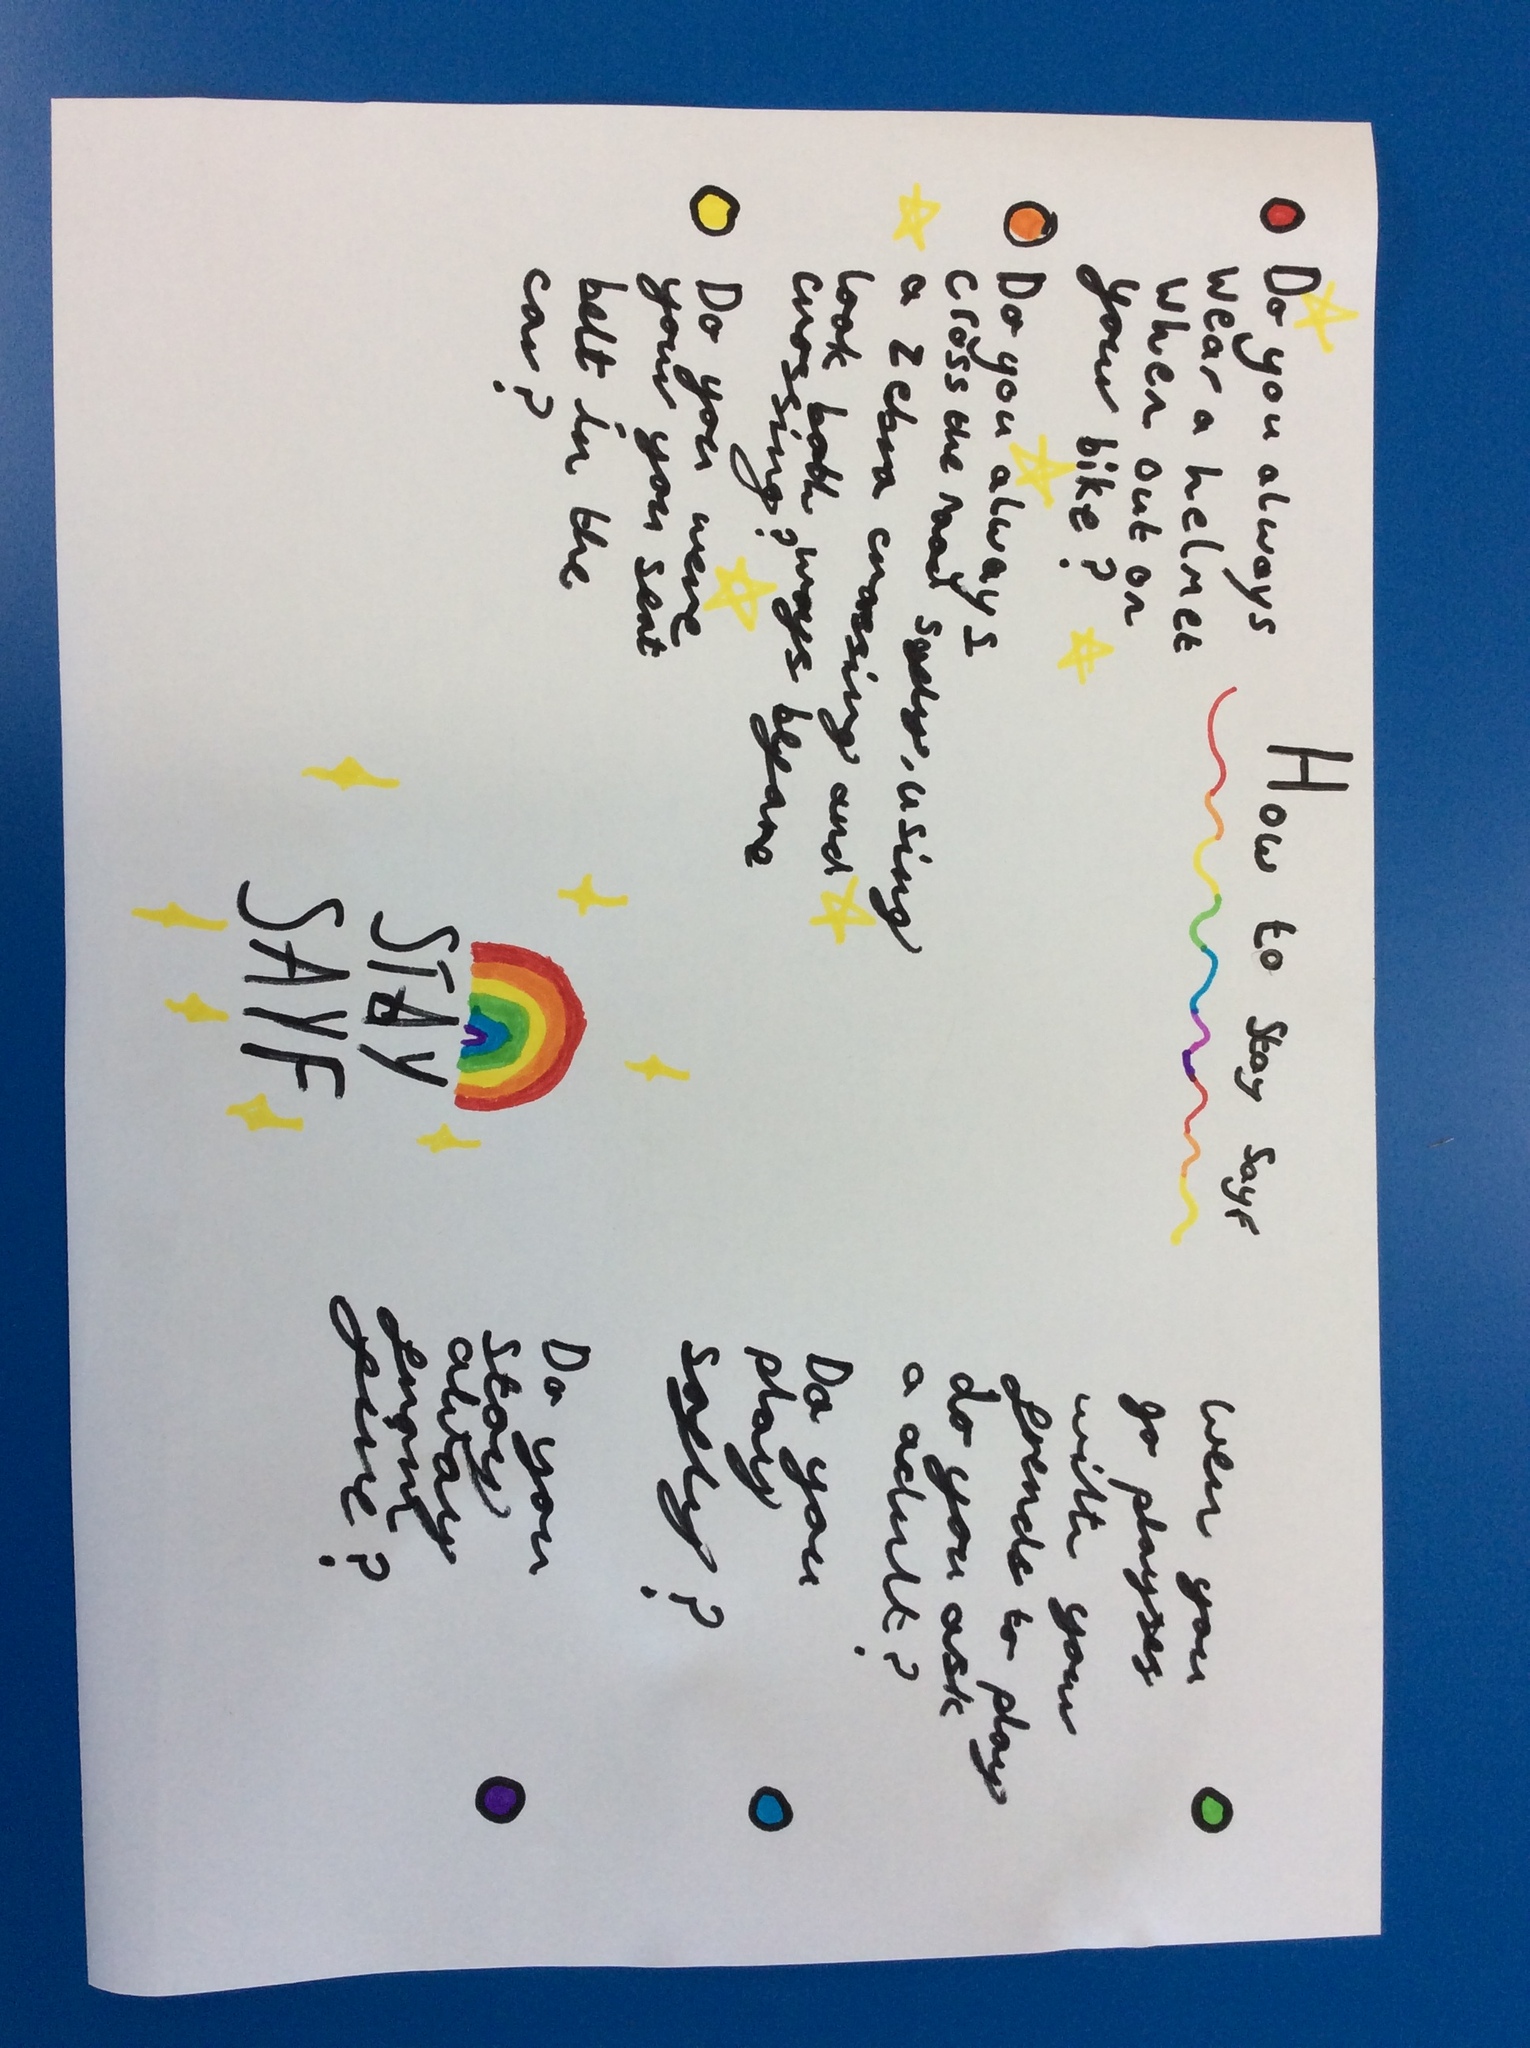 How to Stay SayF
Do you always
Wear a helmet
When out on
your bike?
Do you always
cross the road safely, using
a zebra crossing and
look both ways before
crossing?
Do you were
your you seat
belt in the
car?
Wen you
go playses
with your
frends to play
do you ask
a adult?
Do you
play
safly?
Do you
stay
alway
from
fire?
STAY
SAYF